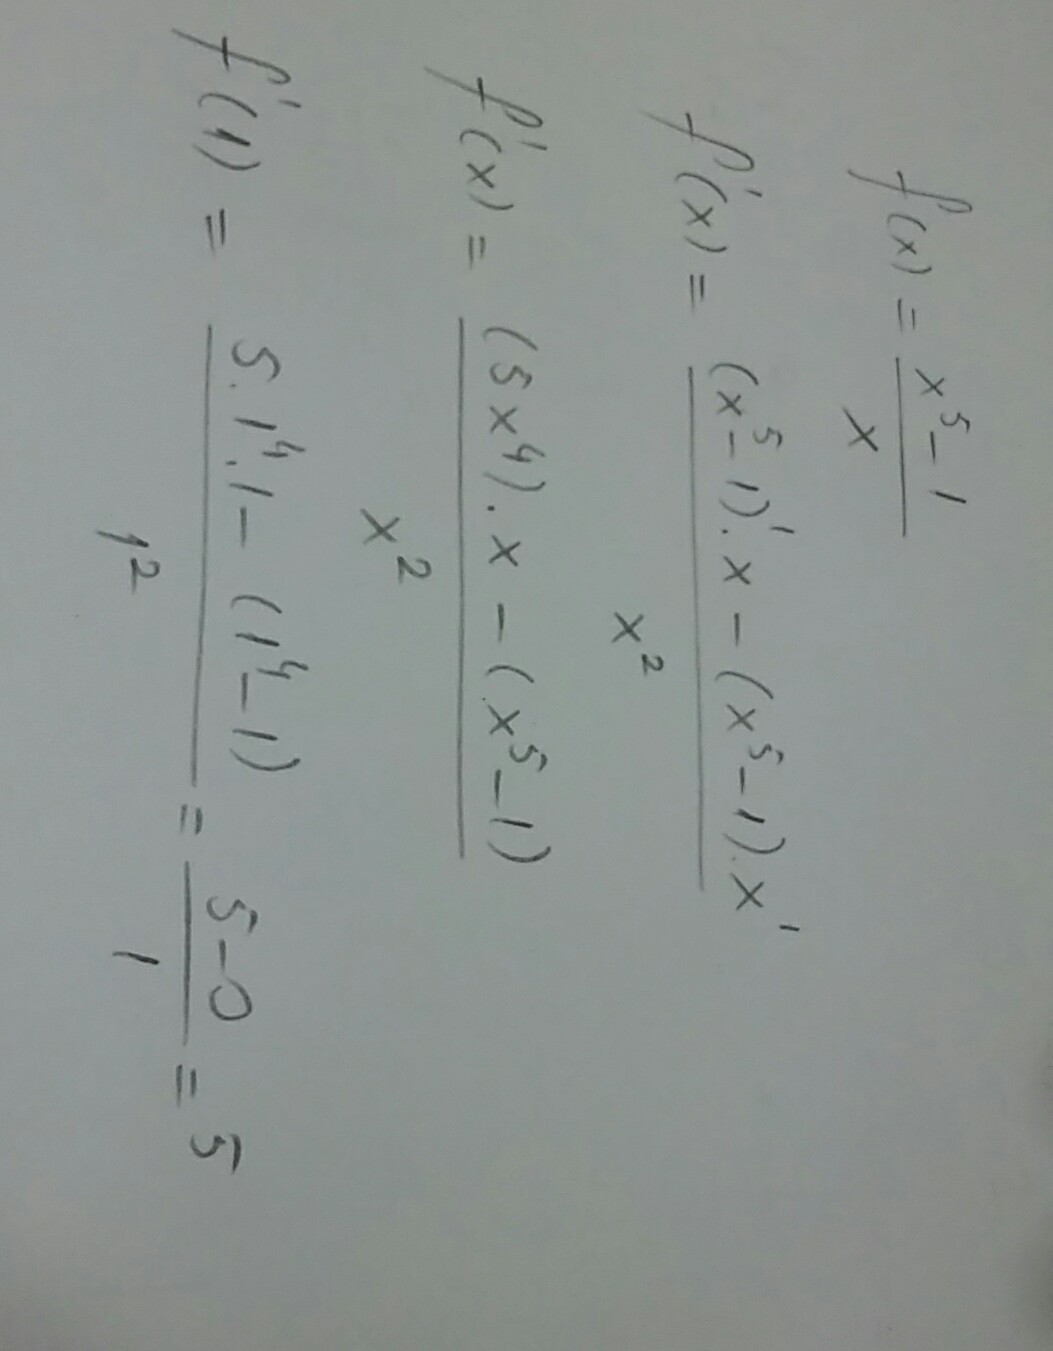 f(x) = (x⁵-1)/x
f'(x) = ((x⁵-1)'.x-(x⁵-1).x')/x²
f'(x) = ((5x⁴).x-(x⁵-1))/x²
f'(1) = (5.1⁴.1-(1⁴-1))/1² = (5-0)/1 = 5